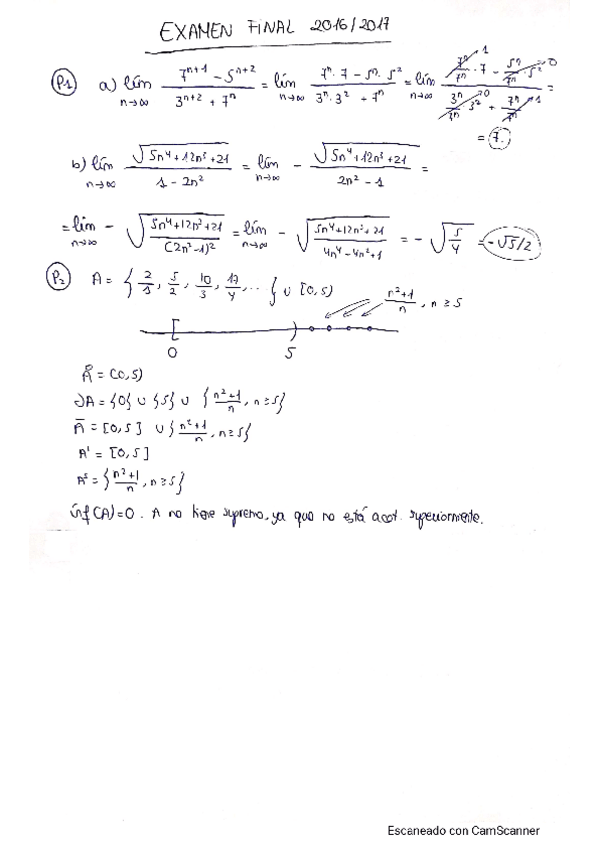 EXAMEN FINAL 2016/2017
P1 a) lím n→∞ (7^(n+1) - 5^(n+2))/(3^(n+2) + 7^n) = lím n→∞ (7^n · 7 - 5^n · 5^2)/(3^n · 3^2 + 7^n) = lím n→∞ (7^n/7^n · 7 - 5^n/7^n · 5^2)/(3^n/7^n 3^2 + 7^n/7^n) =
1 0 0 1
= 7.
b) lím n→∞ √(5n^4+12n^3+21)/(1 - 2n^2) = lím n→∞ - √(5n^4+12n^3+21)/(2n^2 - 1) =
= lím n→∞ - √((5n^4+12n^3+21)/(2n^2-1)^2) = lím n→∞ - √((5n^4+12n^3+21)/(4n^4-4n^2+1)) = - √(5/4) = -√5/2
P2 A = {2/1, 5/2, 10/3, 17/4, ...} ∪ [0,5)
(n^2+1)/n, n ≥ 5
0 5
Å = (0,5)
∂A = {0} ∪ {5} ∪ {(n^2+1)/n, n≥5}
Ā = [0,5] ∪ {(n^2+1)/n, n≥5}
A' = [0,5]
A^s = {(n^2+1)/n, n≥5}
ínf(A)=0. A no tiene supremo, ya que no está acot. superiormente.
Escaneado con CamScanner